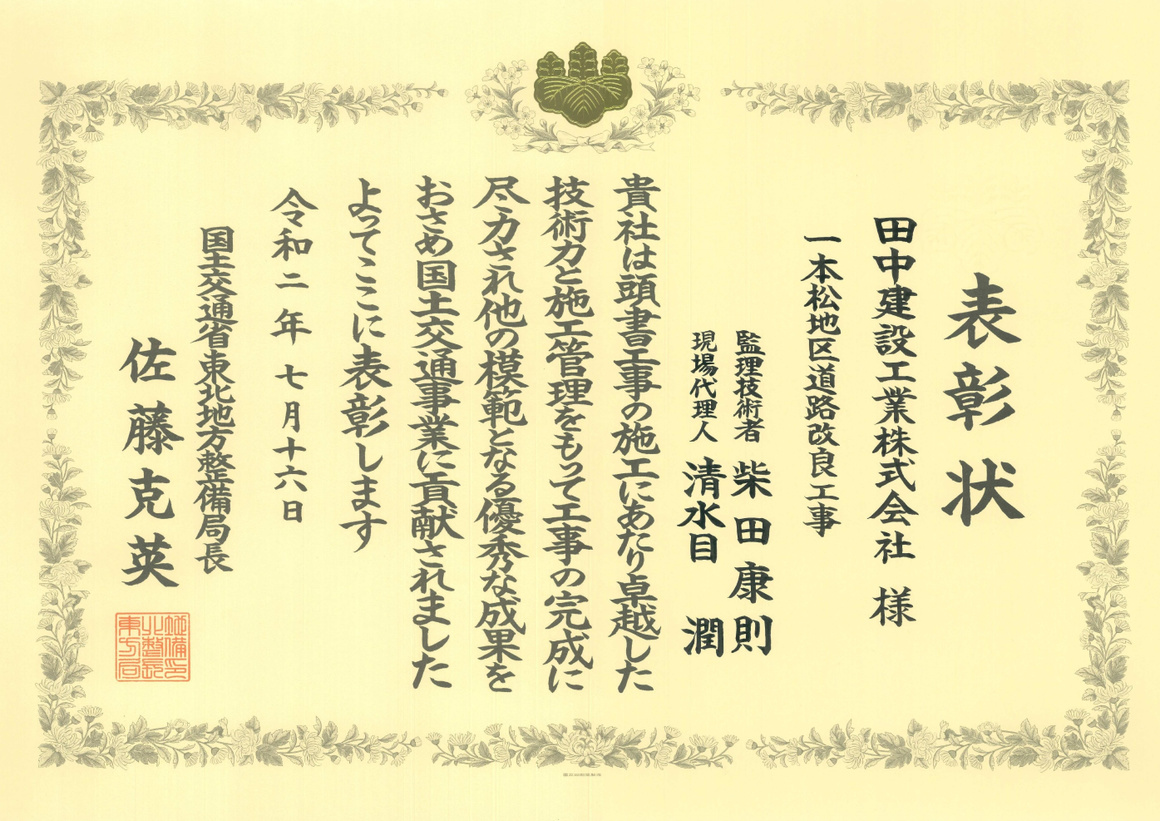 表彰状
田中建設工業株式会社 様
一本松地区道路改良工事
監理技術者 柴田康則
現場代理人 清水目 潤
貴社は頭書工事の施工にあたり卓越した
技術力と施工管理をもって工事の完成に
尽力され他の模範となる優秀な成果を
おさめ国土交通事業に貢献されました
よってここに表彰します
令和二年七月十六日
国土交通省東北地方整備局長
佐藤克英